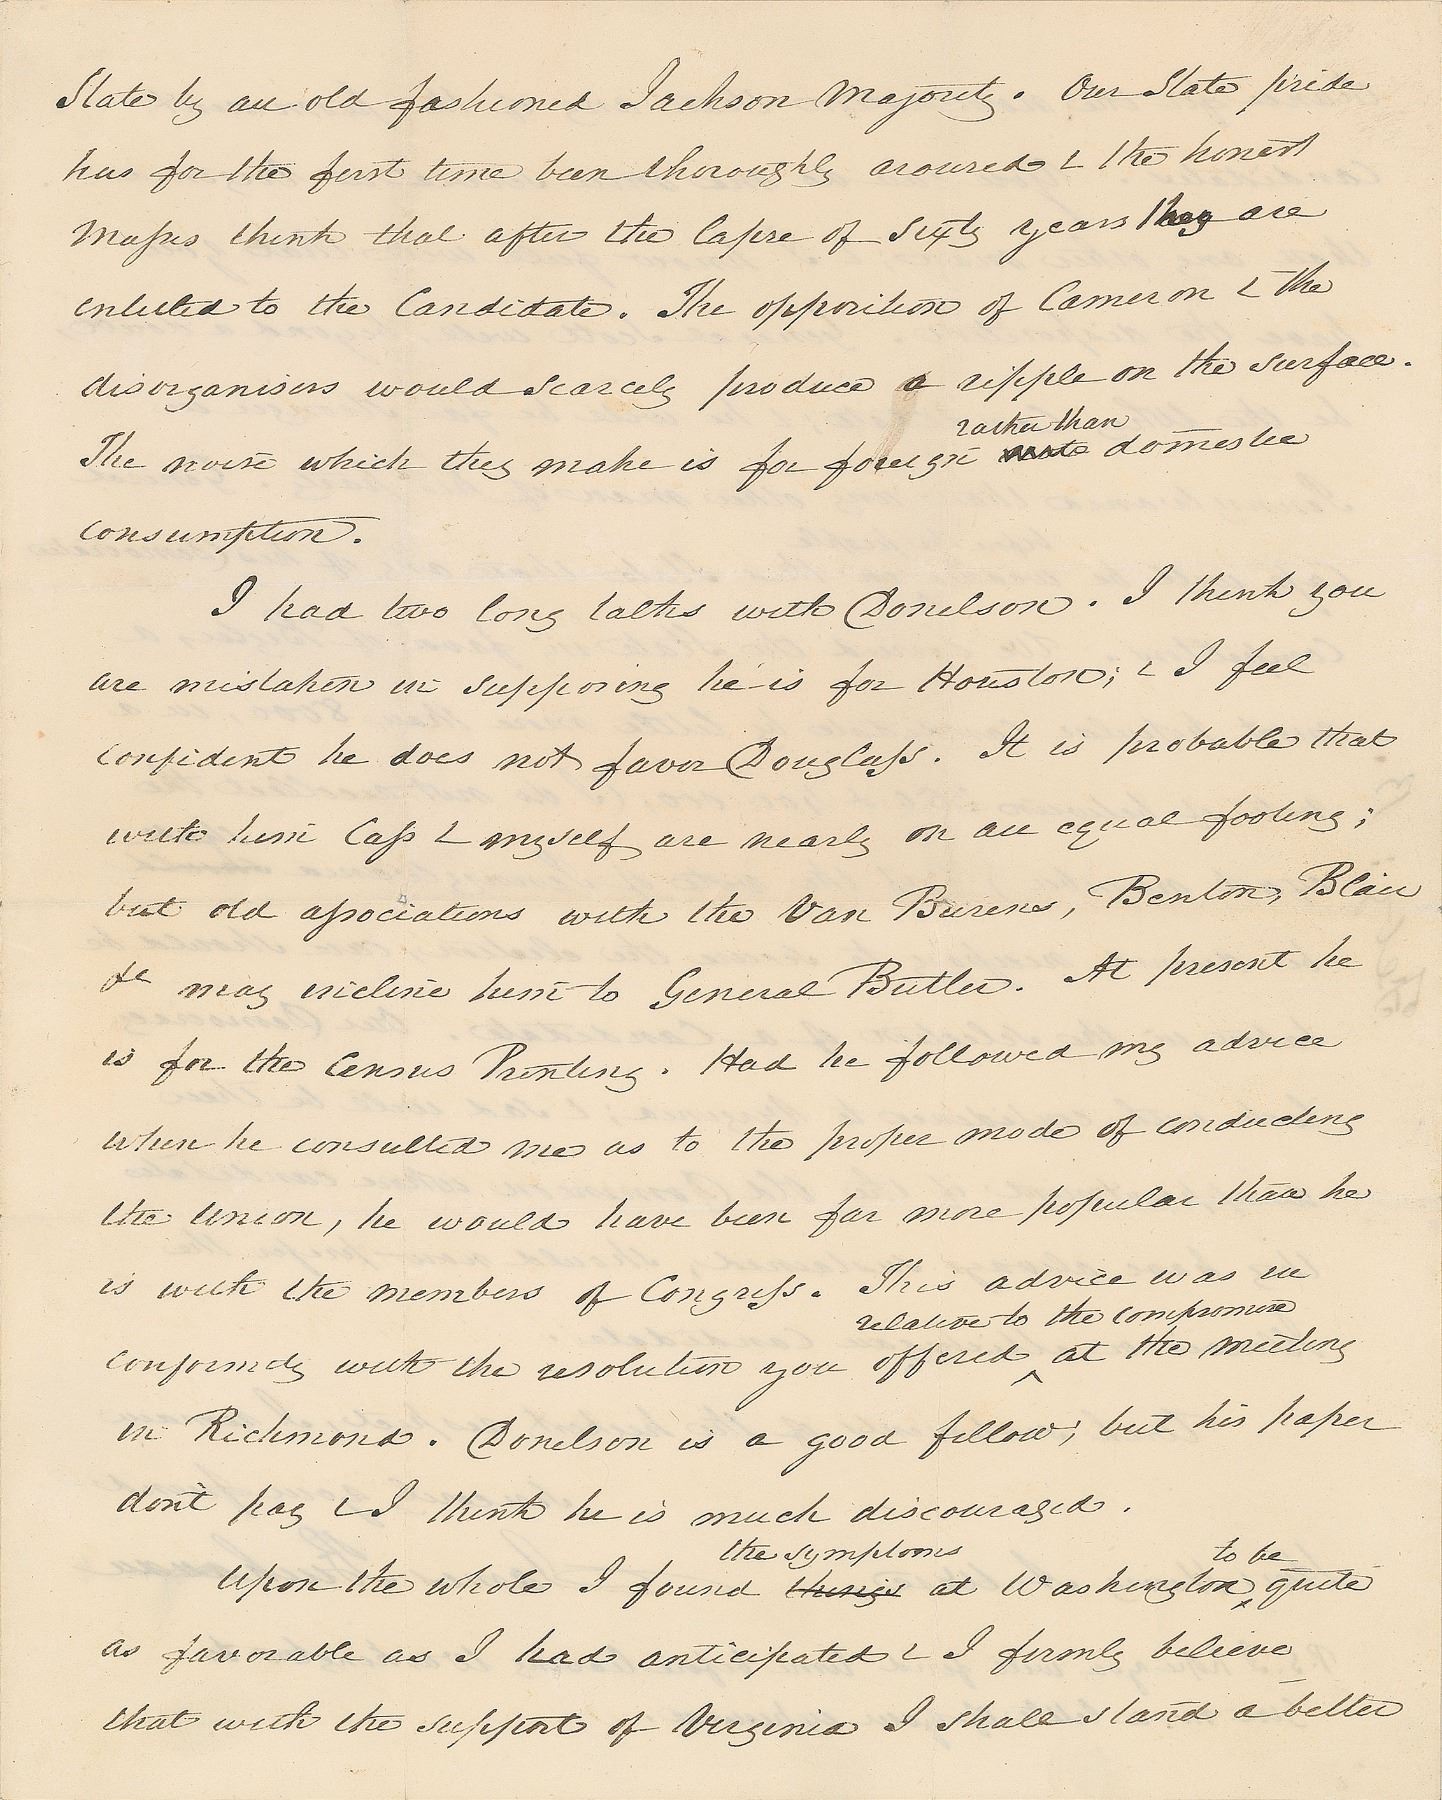 State by an old fashioned Jackson Majority. Our State pride
has for the first time been thoroughly aroused & the honest
Masses think that after the lapse of sixty years they are
entitled to the Candidate. The opposition of Cameron & the
disorganisers would scarcely produce a ripple on the surface.
rather than
The noise which they make is for foreign domestic
consumption.
I had two long talks with Donelson. I think you
are mistaken in supposing he is for Houston; & I feel
confident he does not favor Douglass. It is probable that
with him Cass & myself are nearly on an equal footing;
but old associations with the Van Burens, Benton, Blair
&c may incline him to General Butler. At present he
is for the Census Printing. Had he followed my advice
when he consulted me as to the proper mode of conducting
the Union, he would have been far more popular than he
is with the members of Congress. This advice was in
relative to the compromise
conformity with the resolution you offered ^ at the meeting
in Richmond. Donelson is a good fellow; but his paper
don't pay & I think he is much discouraged.
the symptoms to be
Upon the whole I found things at Washington ^ quite
as favorable as I had anticipated & I firmly believe
that with the support of Virginia I shall stand a better